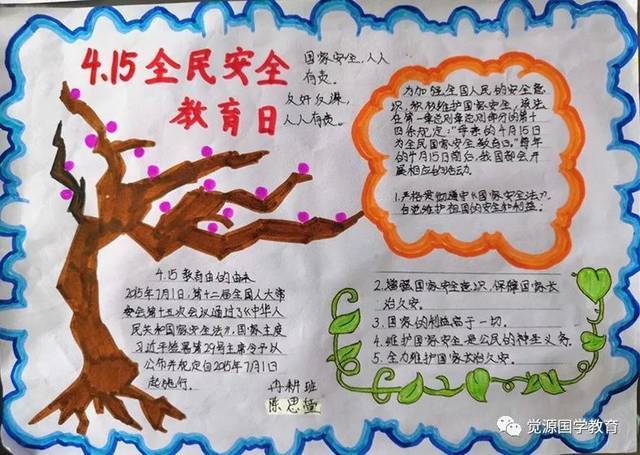 4.15全民安全
教育日
国家安全,人人
有责。
反奸反谍,
人人有责。
为加强全国人民的安全意
识,积极维护国家安全,该法
在第一章总则章总则部分的第十
四条规定:"每年的4月15日
为全民国家安全教育日。"每年
的4月15日前后,我国都会开
展相应的活动。
1.严格贯彻遵守《国家安全法》,
自觉维护祖国的安全和利益。
2.增强国家安全意识,保障国家长
治久安。
3.国家的利益高于一切。
4.维护国家安全是公民的神圣义务。
5.全力维护国家长治久安。
4.15教育日的由来
2015年7月1日,第十二届全国人大常
委会第十五次会议通过了《中华人
民共和国国家安全法》,国家主席
习近平签署第29号主席令予以
公布并规定自2015年7月1日
起施行。
冉耕班
陈思
觉源国学教育